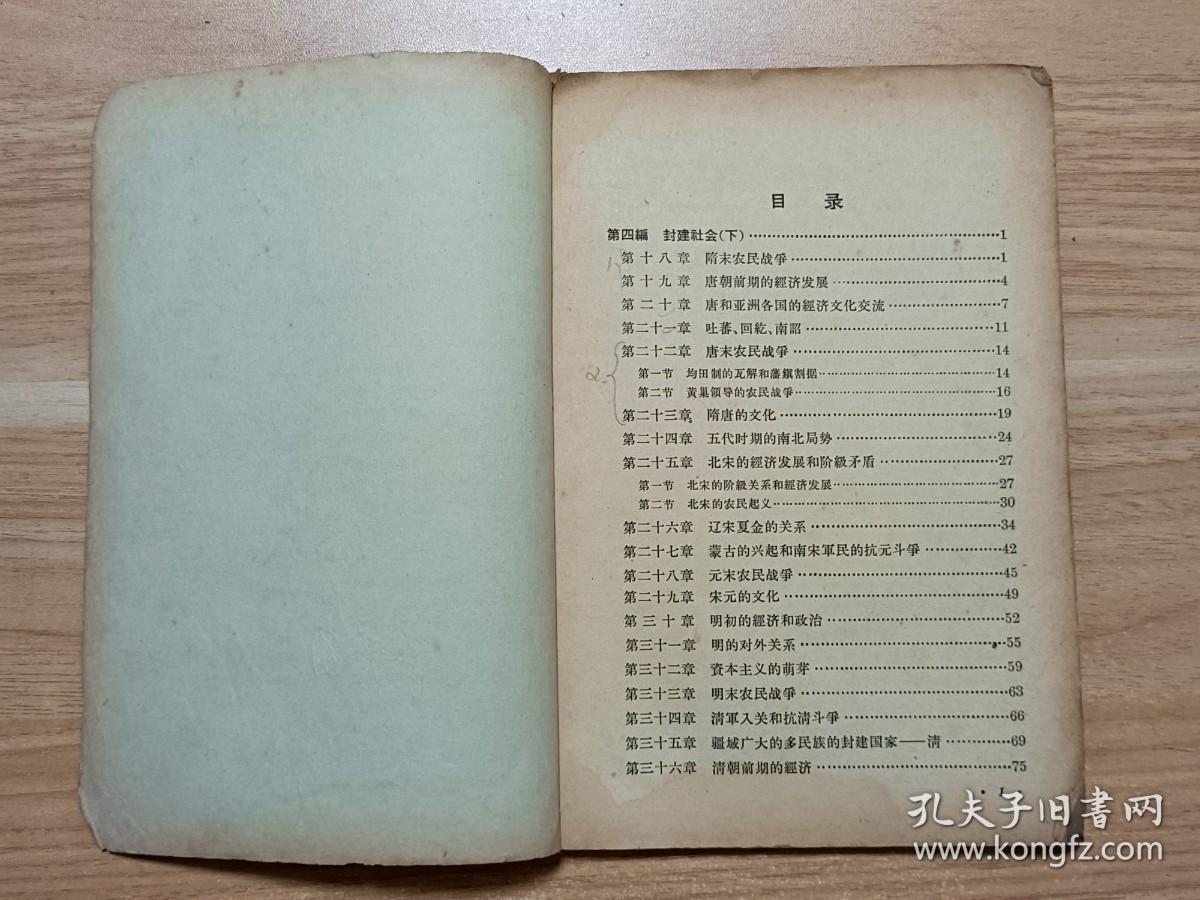 目 录
第四編 封建社会(下)…………………………1
第十八章 隋末农民战爭…………………………1
第十九章 唐朝前期的經济发展…………………………4
第二十章 唐和亚洲各国的經济文化交流…………………………7
第二十一章 吐蕃、回紇、南詔…………………………11
第二十二章 唐末农民战爭…………………………14
第一节 均田制的瓦解和藩鎮割据…………………………14
第二节 黄巢领导的农民战爭…………………………16
第二十三章 隋唐的文化…………………………19
第二十四章 五代时期的南北局势…………………………24
第二十五章 北宋的經济发展和阶級矛盾…………………………27
第一节 北宋的阶級关系和經济发展…………………………27
第二节 北宋的农民起义…………………………30
第二十六章 辽宋夏金的关系…………………………34
第二十七章 蒙古的兴起和南宋軍民的抗元斗爭…………………………42
第二十八章 元末农民战爭…………………………45
第二十九章 宋元的文化…………………………49
第三十章 明初的經济和政治…………………………52
第三十一章 明的对外关系…………………………55
第三十二章 資本主义的萌芽…………………………59
第三十三章 明末农民战爭…………………………63
第三十四章 清軍入关和抗清斗爭…………………………66
第三十五章 疆域广大的多民族的封建国家——清…………………………69
第三十六章 清朝前期的經济…………………………75
• 1
孔夫子旧书网
www.kongfz.com